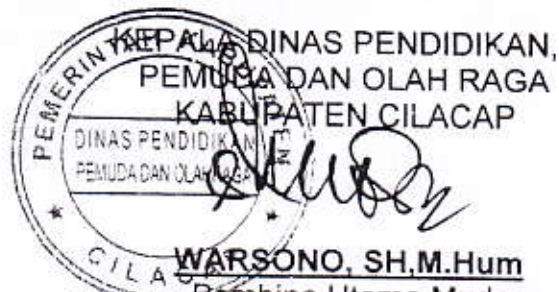 KEPALA DINAS PENDIDIKAN,
PEMUDA DAN OLAH RAGA
KABUPATEN CILACAP
PEMERINTAH KABUPATEN
DINAS PENDIDIKAN
PEMUDA DAN OLAHRAGA
CILACAP
WARSONO, SH,M.Hum
Pembina Utama Muda